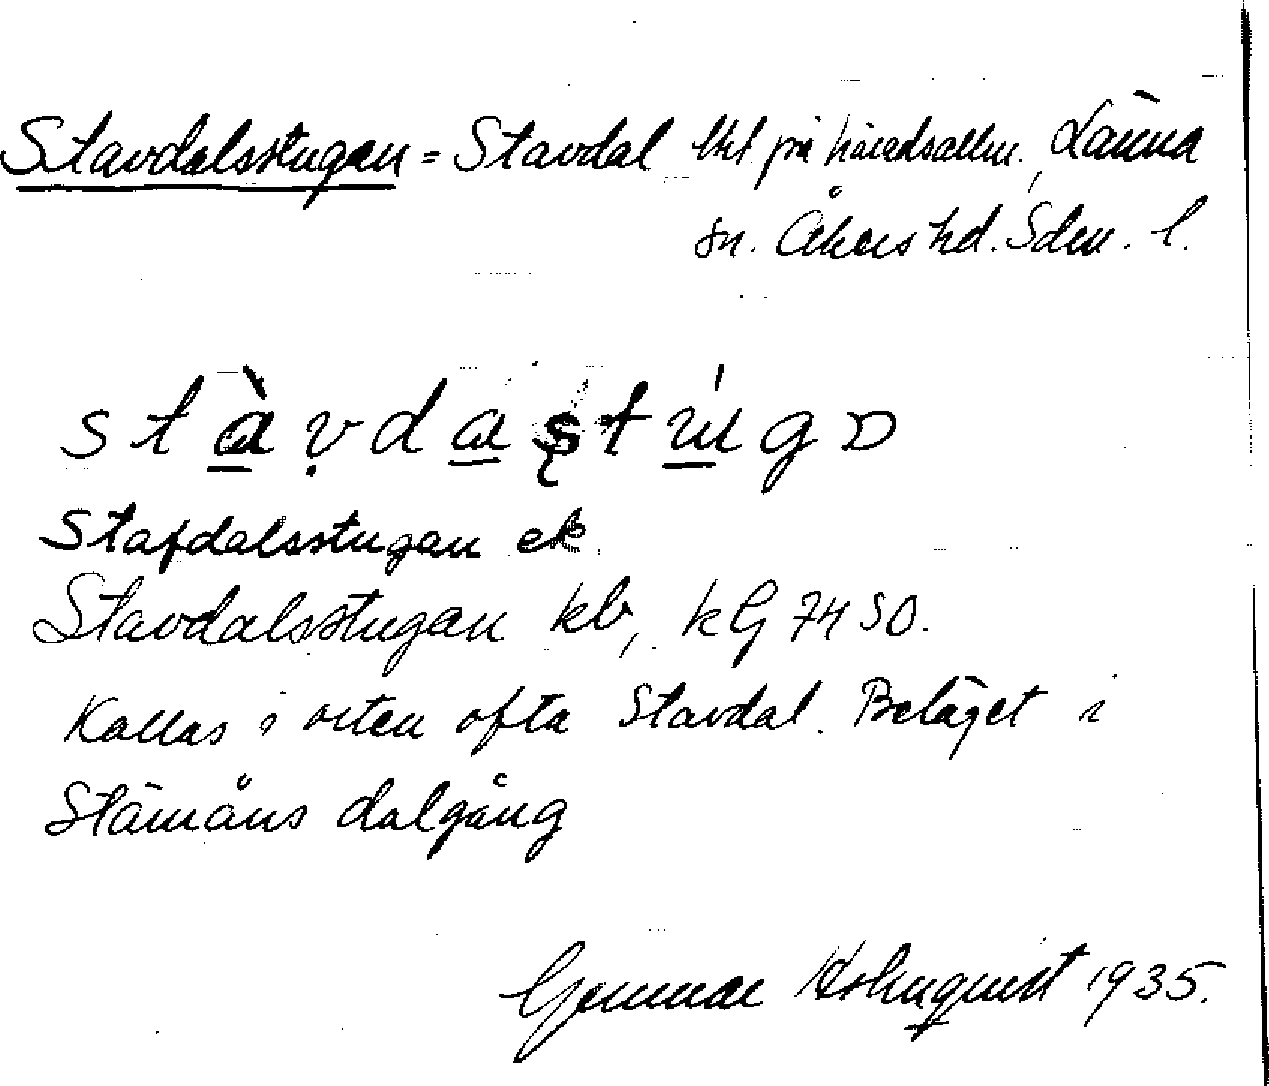 Stavdalsstugan = Stavdal lht på häradsallm. Länna
sn. Åkers hd. Södm. l.
stàvdastug
Stafdalsstugan ek.
Stavdalsstugan kb, kG 74 SO.
Kallas i orten ofta Stavdal. Beläget i
Stämåns dalgång
Gunnar Holmquist 1935.